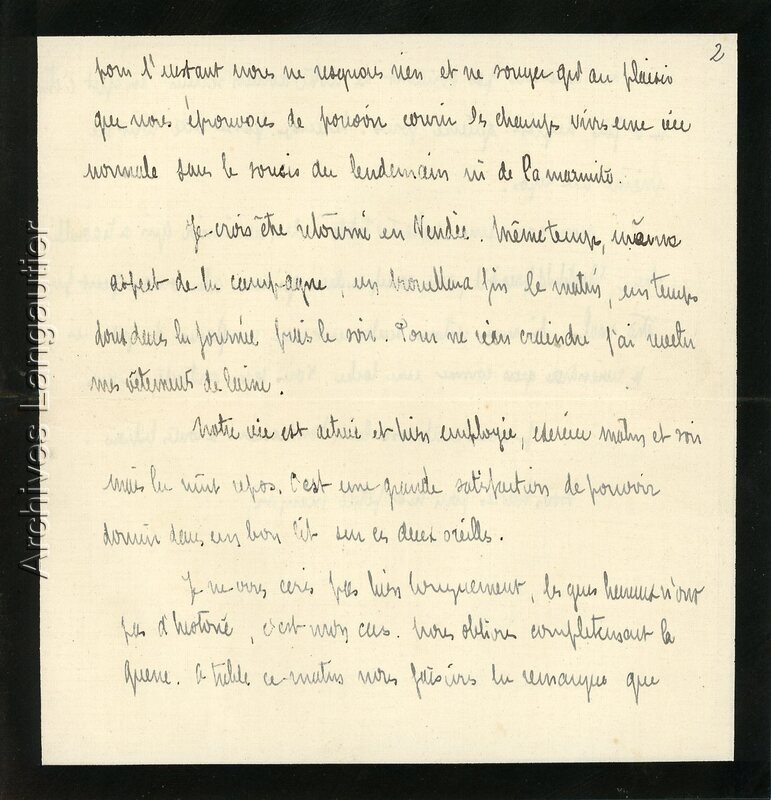 2
pour l'instant nous ne risquons rien et ne songez qu'au plaisir
que nous éprouvons de pouvoir courir les champs vivre une vie
normale sans le soucis du lendemain ni de la marmite.
Je crois être retourné en Vendée. Même temps, même
aspect de la campagne, un brouillard gris le matin, un temps
doux dans la journée frais le soir. Pour ne rien craindre j'ai
mes vêtement de laine.
Notre vie est active et bien employée, exercice matin et soir
mais la nuit repos. C'est une grande satisfaction de pouvoir
dormir dans un bon lit sur ces deux oreilles.
Je ne vous ecris pas bien longuement, les gens heureux n'ont
pas d'histoire, c'est mon cas. Nous oblions completement la
guerre. A table ce matin nous faisions la remarque que
Archives Langautier